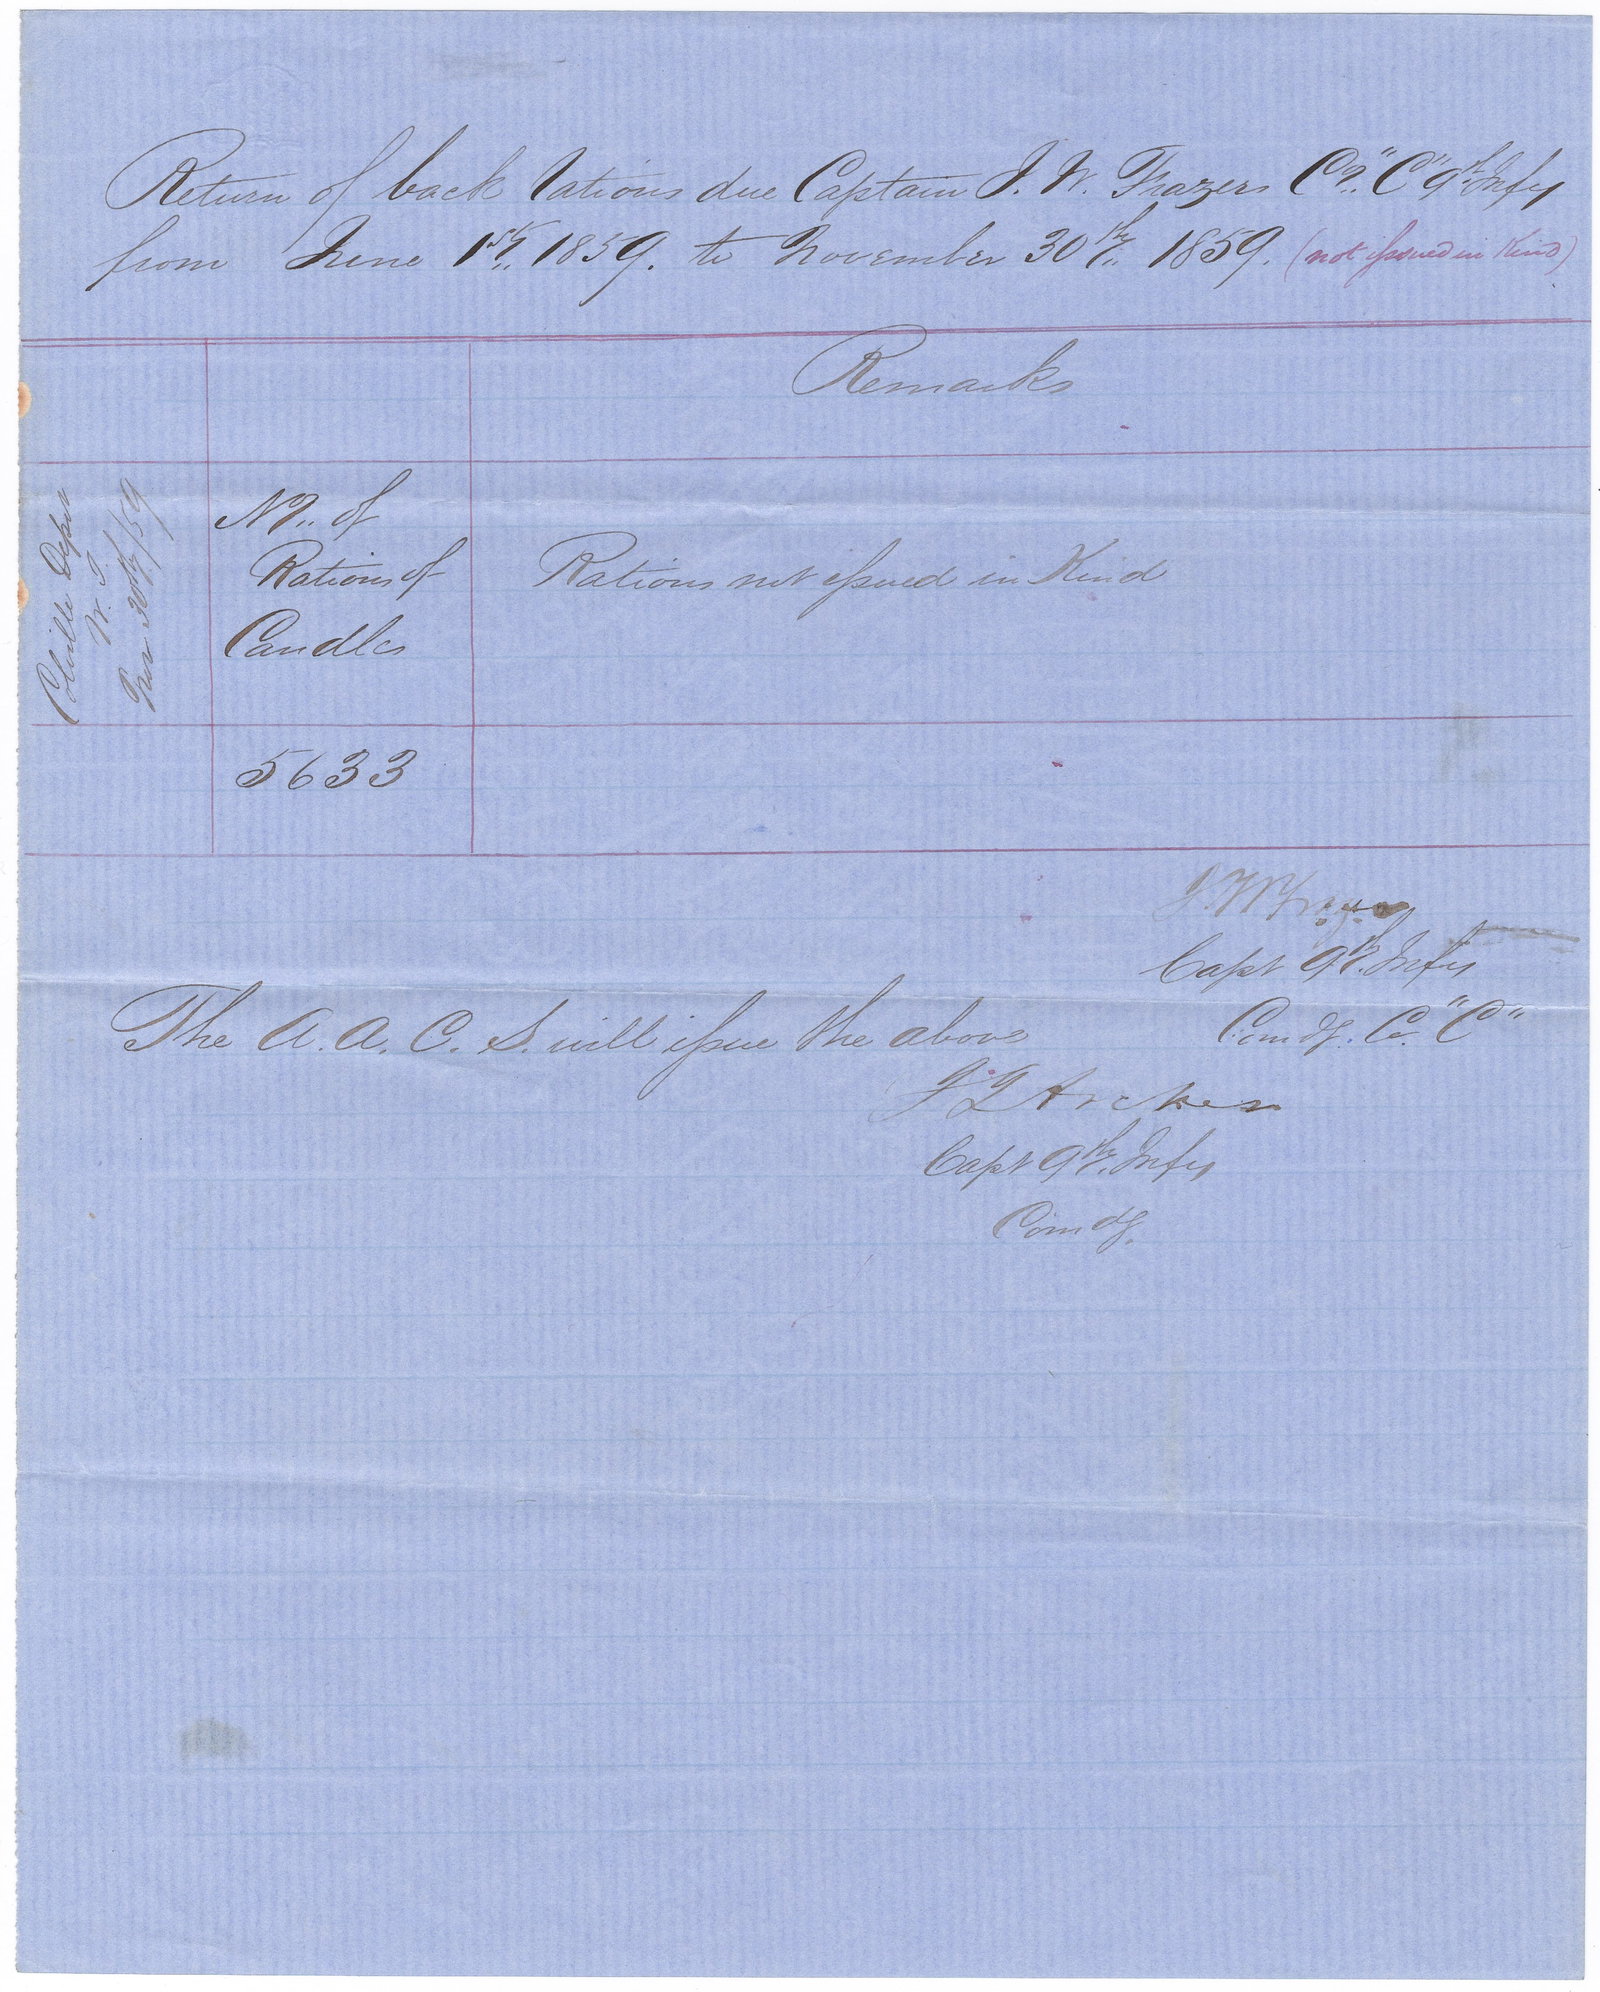 Return of back rations due Captain J. W. Frazers Co. "C" 9th Infy
from June 1st 1859. to November 30th 1859. (not issued in Kind)
Remarks
Colville Depot
W. T.
Nov 30th/59
No. of
Rations of
Candles
Rations not issued in Kind
5633
J. W. Frazer
Capt 9th. Infy
Comdg. Co. "C"
The A. A. C. S. will issue the above
J J Archer
Capt 9th. Infy
Comdg.